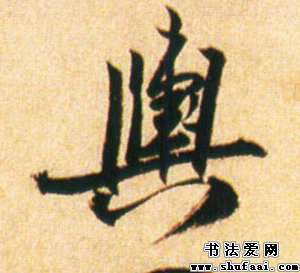 舆
書法爱网
www.shufaai.com